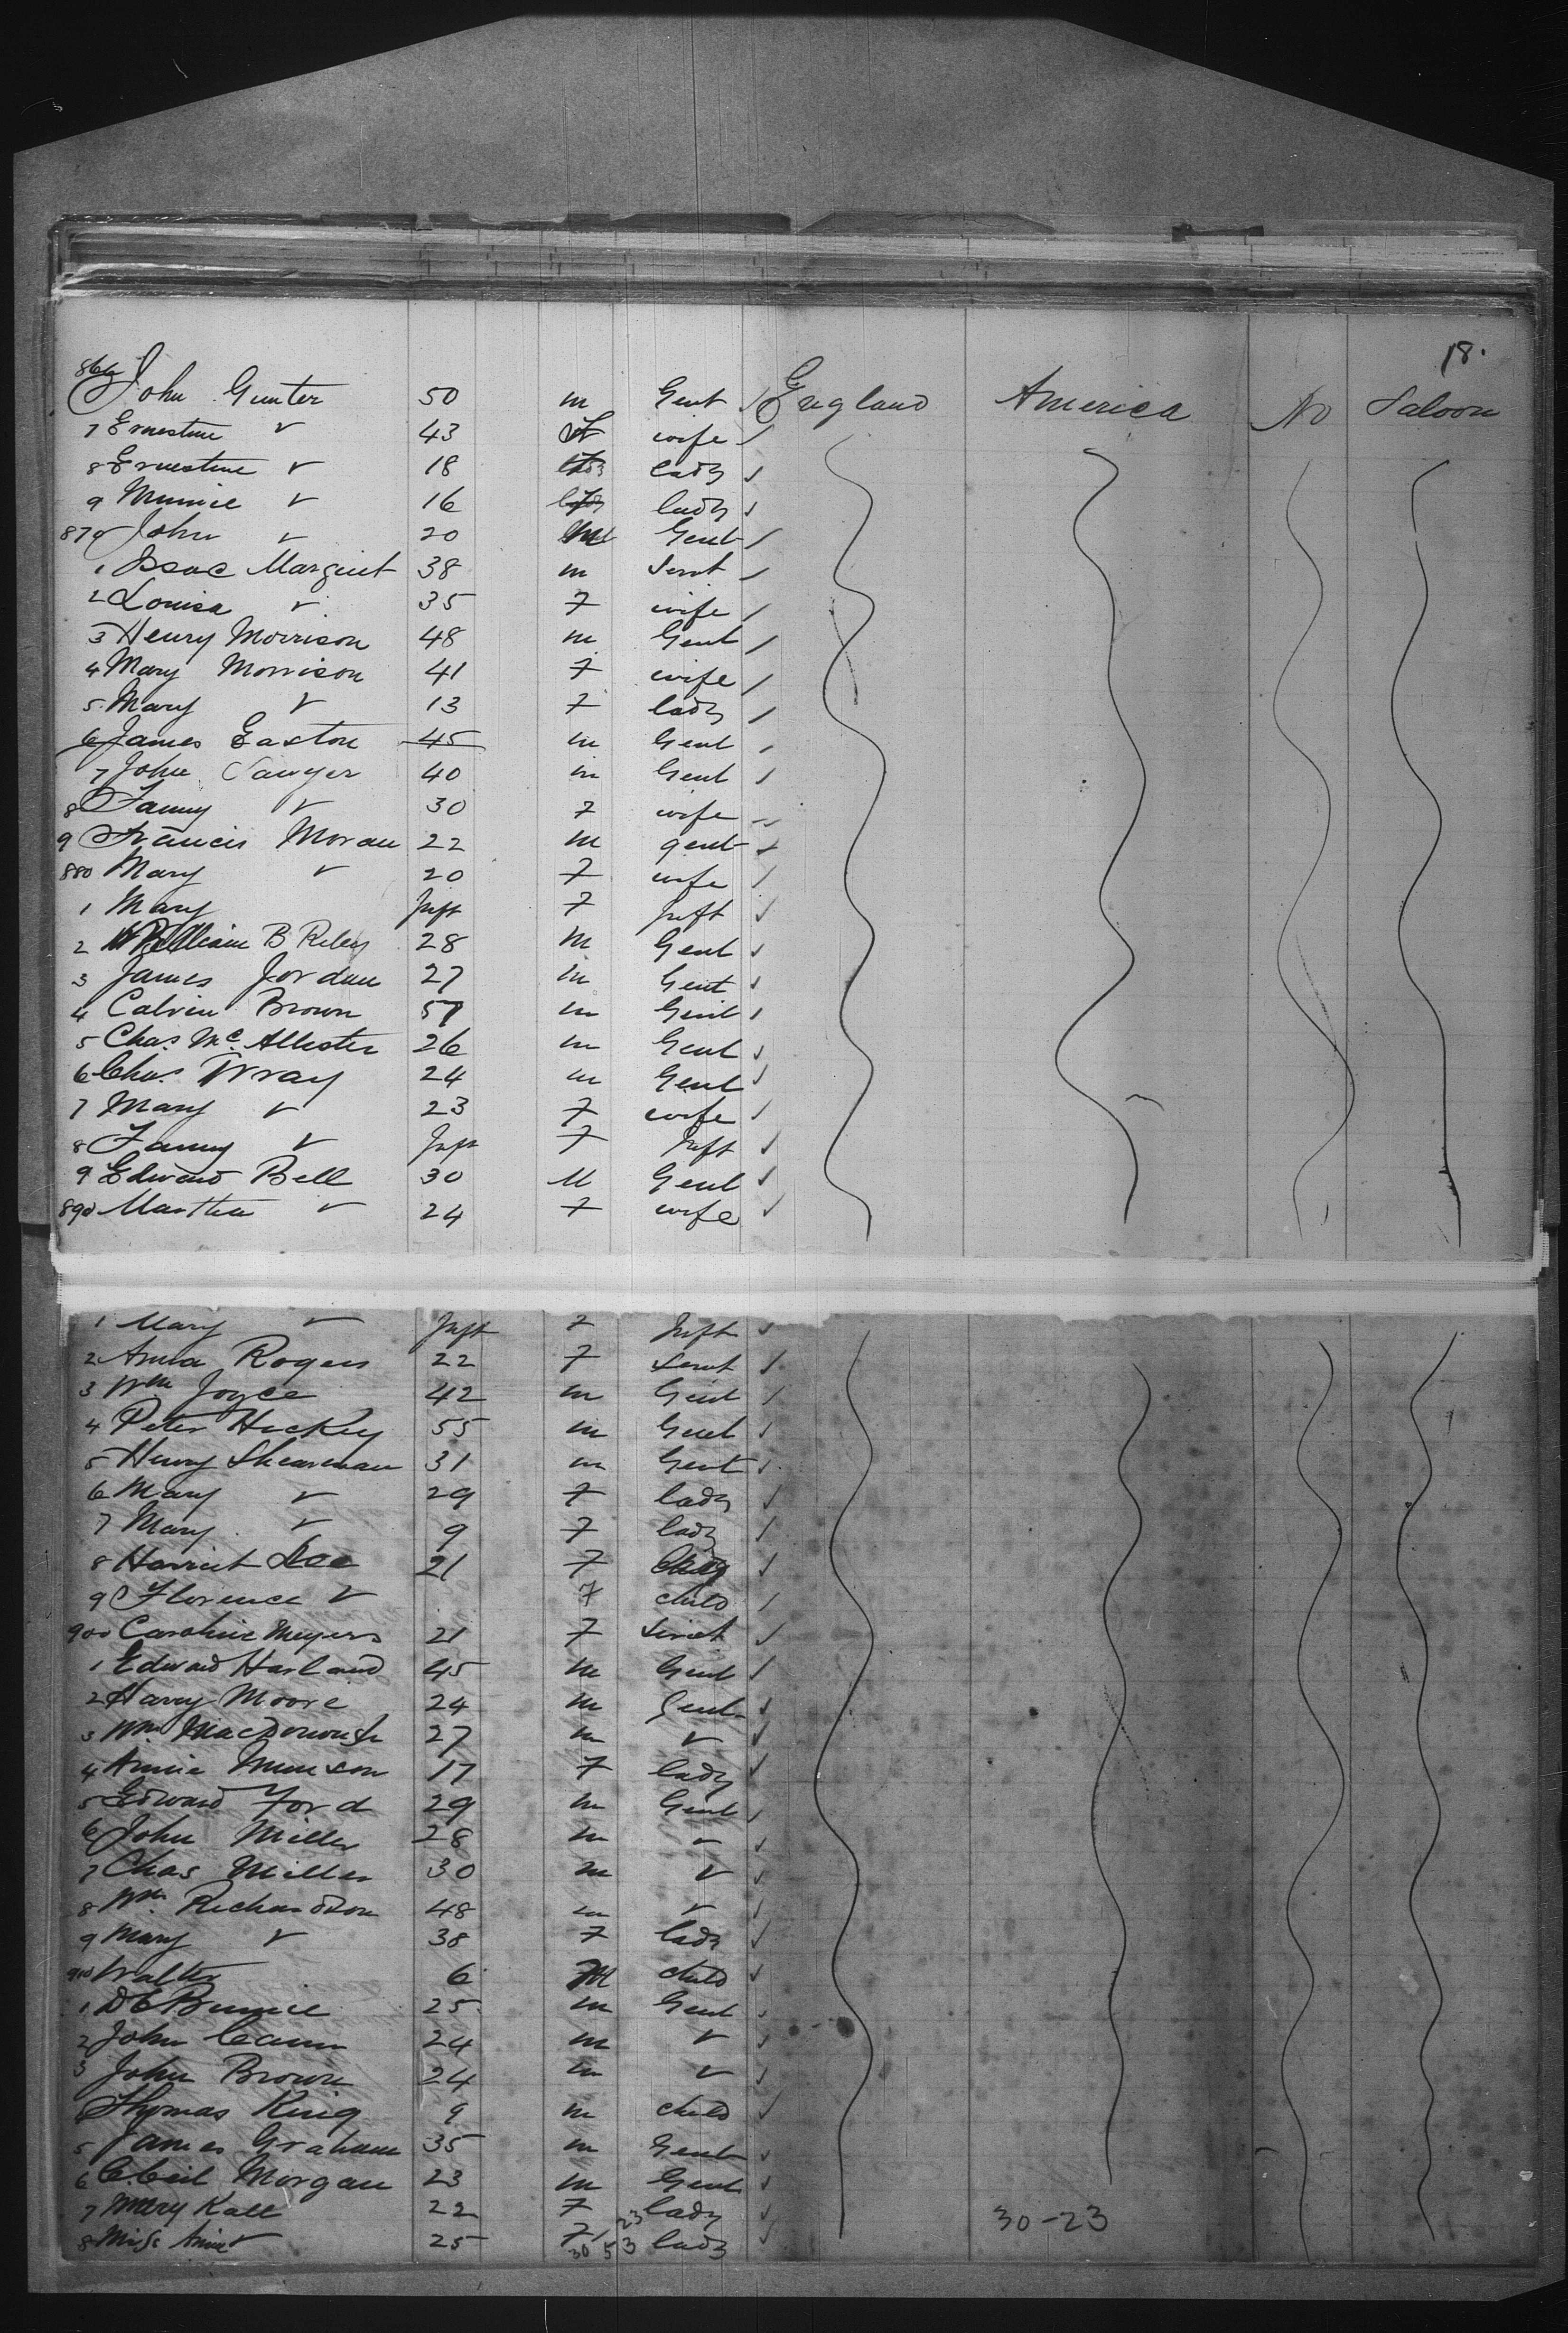 18.
866 John Gunter 50 m Gent / England America No Saloon
7 Ernestine v 43 f wife /
8 Ernestine v 18 f lady ✓
9 Minnie v 16 f lady ✓
870 John v 20 m Gent /
1 Isaac Margient 38 m Servt /
2 Louisa v 35 F wife /
3 Henry Morrison 48 m Gent /
4 Mary Morrison 41 F wife /
5 Mary v 13 F lady /
6 James Easton 45 m Gent /
7 John Sawyer 40 m Gent /
8 Fanny v 30 F wife
9 Francis Moran 22 m gent ✓
880 Mary v 20 F wife /
1 Mary Inft F Inft ✓
2 William B Riley 28 m Gent ✓
3 James Jordan 27 m Gent ✓
4 Calvin Brown 57 m Gent /
5 Chas. Mc. Allister 26 m Gent ✓
6 Chas. Wray 24 m Gent ✓
7 Mary v 23 F wife /
8 Fanny v Inft F Inft ✓
9 Edward Bell 30 M Gent ✓
890 Martha v 24 F wife ✓
1 Mary v Inft F Inft ✓
2 Anna Rogers 22 F Servt /
3 Wm Joyce 42 m Gent /
4 Peter Hickey 55 m Gent ✓
5 Henry Shearman 31 m Gent ✓
6 Mary v 29 F lady ✓
7 Mary v 9 F lady /
8 Harriet Lee 21 F ✓
9 Florence v F child /
900 Caroline Meyers 21 F Servt ✓
1 Edward Harland 45 m Gent /
2 Harry Moore 24 m Gent ✓
3 Wm. MacDonough 27 m v ✓
4 Annie Munson 17 F lady ✓
5 Edward Ford 29 m Gent /
6 John Miller 28 m v ✓
7 Chas Miller 30 m v ✓
8 Wm. Richardson 48 m v ✓
9 Mary v 38 F lady ✓
910 Walter 6 M child ✓
1 D E 25 m Gent ✓
2 John Cann 24 m v ✓
3 John Brown 24 m v ✓
Thomas King 9 m child ✓
5 James Graham 35 m Gent ✓
6 Cecil Morgan 23 m Gent ✓
7 Mary Kall 22 F lady ✓ 30-23
8 Miss 25 F lady ✓
23
30 53